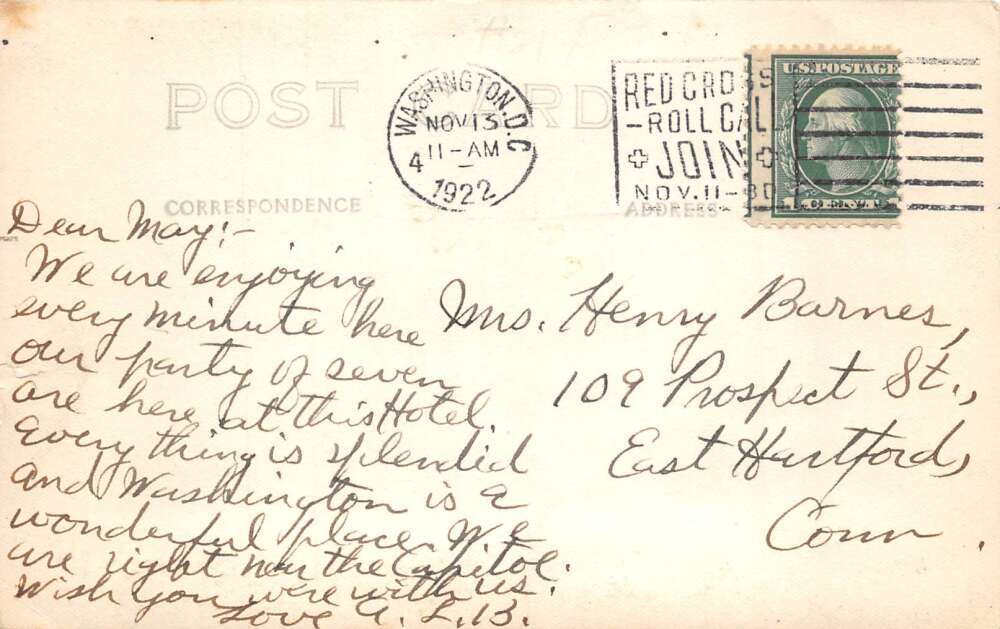 POST CARD
WASHINGTON, D.C.
NOV 13
11-AM
4
1922
RED CROSS
-ROLL CALL
JOIN
NOV. 11-30
U.S. POSTAGE
CORRESPONDENCE
ADDRESS
Dear May:-
We are enjoying
every minute here
our party of seven
are here at this Hotel.
Every thing is splendid
and Washington is a
wonderful place. We
are right near the Capitol.
Wish you were with us.
Love A. L. B.
Mrs. Henry Barnes,
109 Prospect St.,
East Hartford,
Conn.